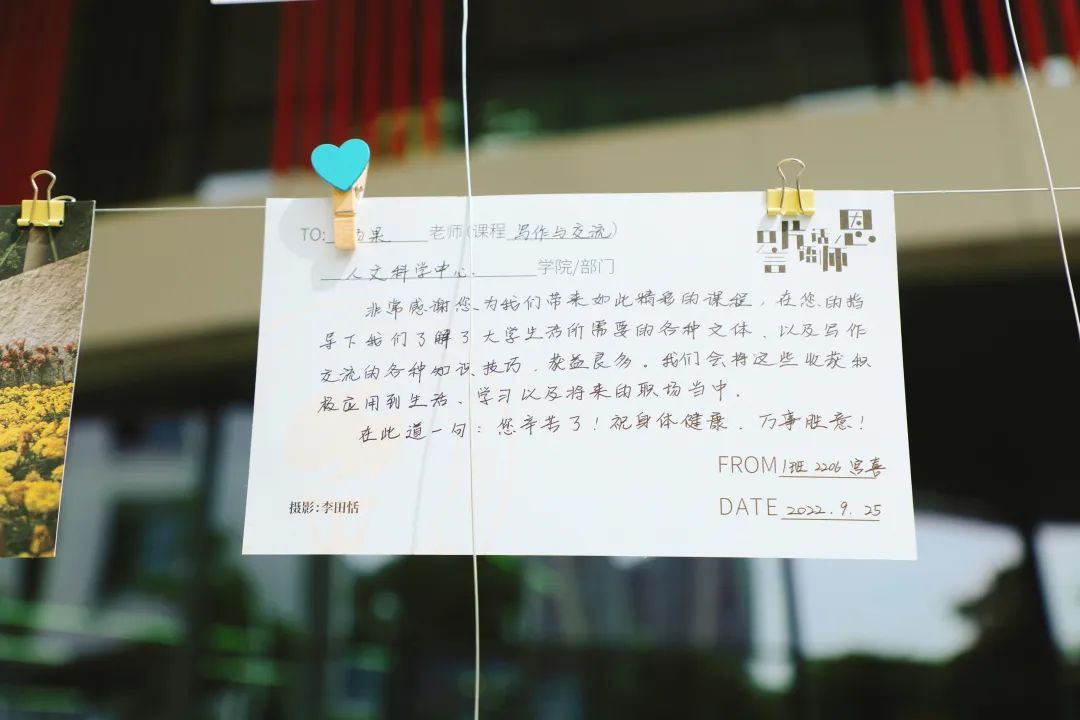 TO: 果 老师(课程 写作与交流)
人文科学中心 学院/部门
非常感谢您为我们带来如此精彩的课程，在您的指
导下我们了解了大学生活所需要的各种文体、以及写作
交流的各种知识技巧，获益良多。我们会将这些收获积
极应用到生活、学习以及将来的职场当中。
在此道一句：您辛苦了！祝身体健康、万事胜意！
FROM 1班 2206 宫喜
DATE 2022.9.25
摄影:李田恬